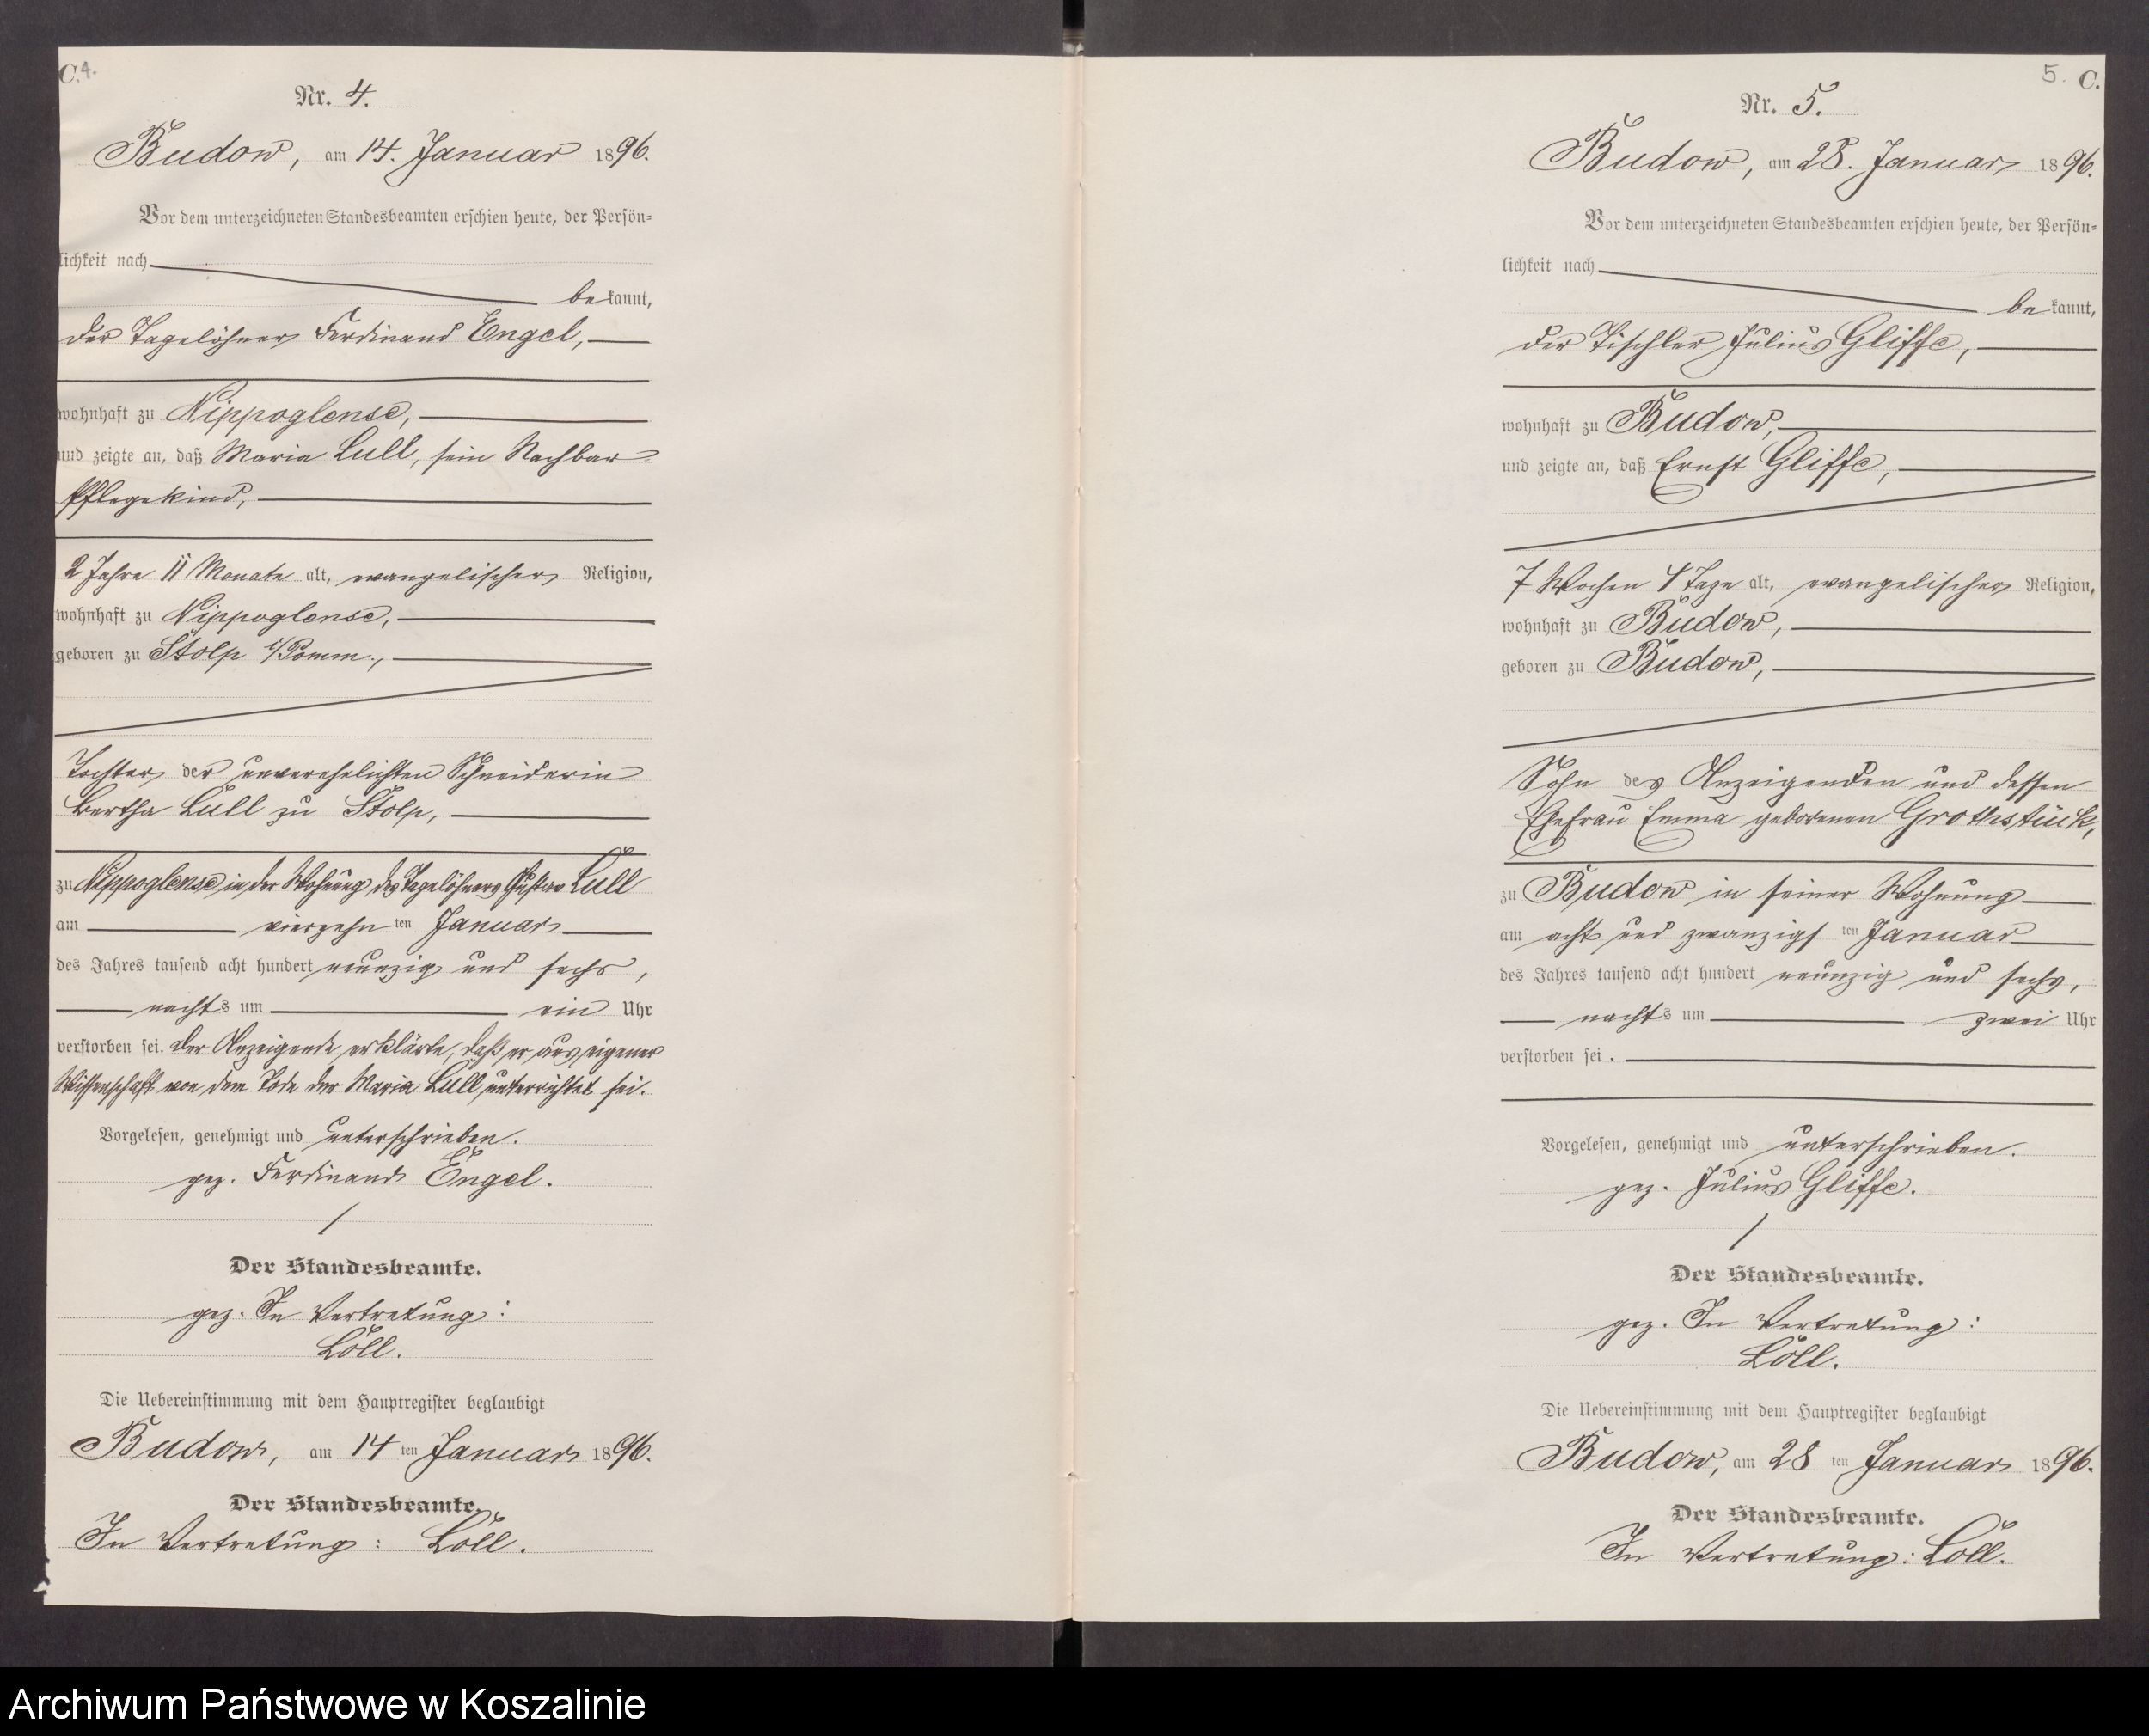 C.
4.
Nr. 4.
Budow, am 14. Januar 1896.
Vor dem unterzeichneten Standesbeamten erschien heute, der Persön-
lichkeit nach
bekannt,
der Tagelöhner Ferdinand Engel,
wohnhaft zu Nippoglense,
und zeigte an, daß Maria Lull, sein Nachbar-
Pflegekind,
2 Jahre 11 Monate alt, evangelischer Religion,
wohnhaft zu Nippoglense,
geboren zu Stolp i/Pomm.,
Tochter der unverehelichten Schneiderin
Bertha Lull zu Stolp,
zu Nippoglense in der Wohnung des Tagelöhners Gustav Lull
am vierzehnten Januar
des Jahres tausend acht hundert neunzig und sechs,
nachts um ein Uhr
verstorben sei. Der Anzeigende erklärte, daß er aus eigener
Wissenschaft von dem Tode der Maria Lull unterrichtet sei.
Vorgelesen, genehmigt und unterschrieben.
gez. Ferdinand Engel.
Der Standesbeamte.
gez. In Vertretung:
Löll.
Die Uebereinstimmung mit dem Hauptregister beglaubigt
Budow, am 14ten Januar 1896.
Der Standesbeamte.
In Vertretung: Löll.
5. C.
Nr. 5.
Budow, am 28. Januar 1896.
Vor dem unterzeichneten Standesbeamten erschien heute, der Persön-
lichkeit nach
bekannt,
der Tischler Julius Gliffe,
wohnhaft zu Budow,
und zeigte an, daß Ernst Gliffe,
7 Wochen 4 Tage alt, evangelischer Religion,
wohnhaft zu Budow,
geboren zu Budow,
Sohn des Anzeigenden und dessen
Ehefrau Emma geborenen Grothstück,
zu Budow in seiner Wohnung
am acht und zwanzigsten Januar
des Jahres tausend acht hundert neunzig und sechs,
nachts um zwei Uhr
verstorben sei.
Vorgelesen, genehmigt und unterschrieben.
gez. Julius Gliffe.
Der Standesbeamte.
gez. In Vertretung:
Löll.
Die Uebereinstimmung mit dem Hauptregister beglaubigt
Budow, am 28ten Januar 1896.
Der Standesbeamte.
In Vertretung: Löll.
Archiwum Państwowe w Koszalinie